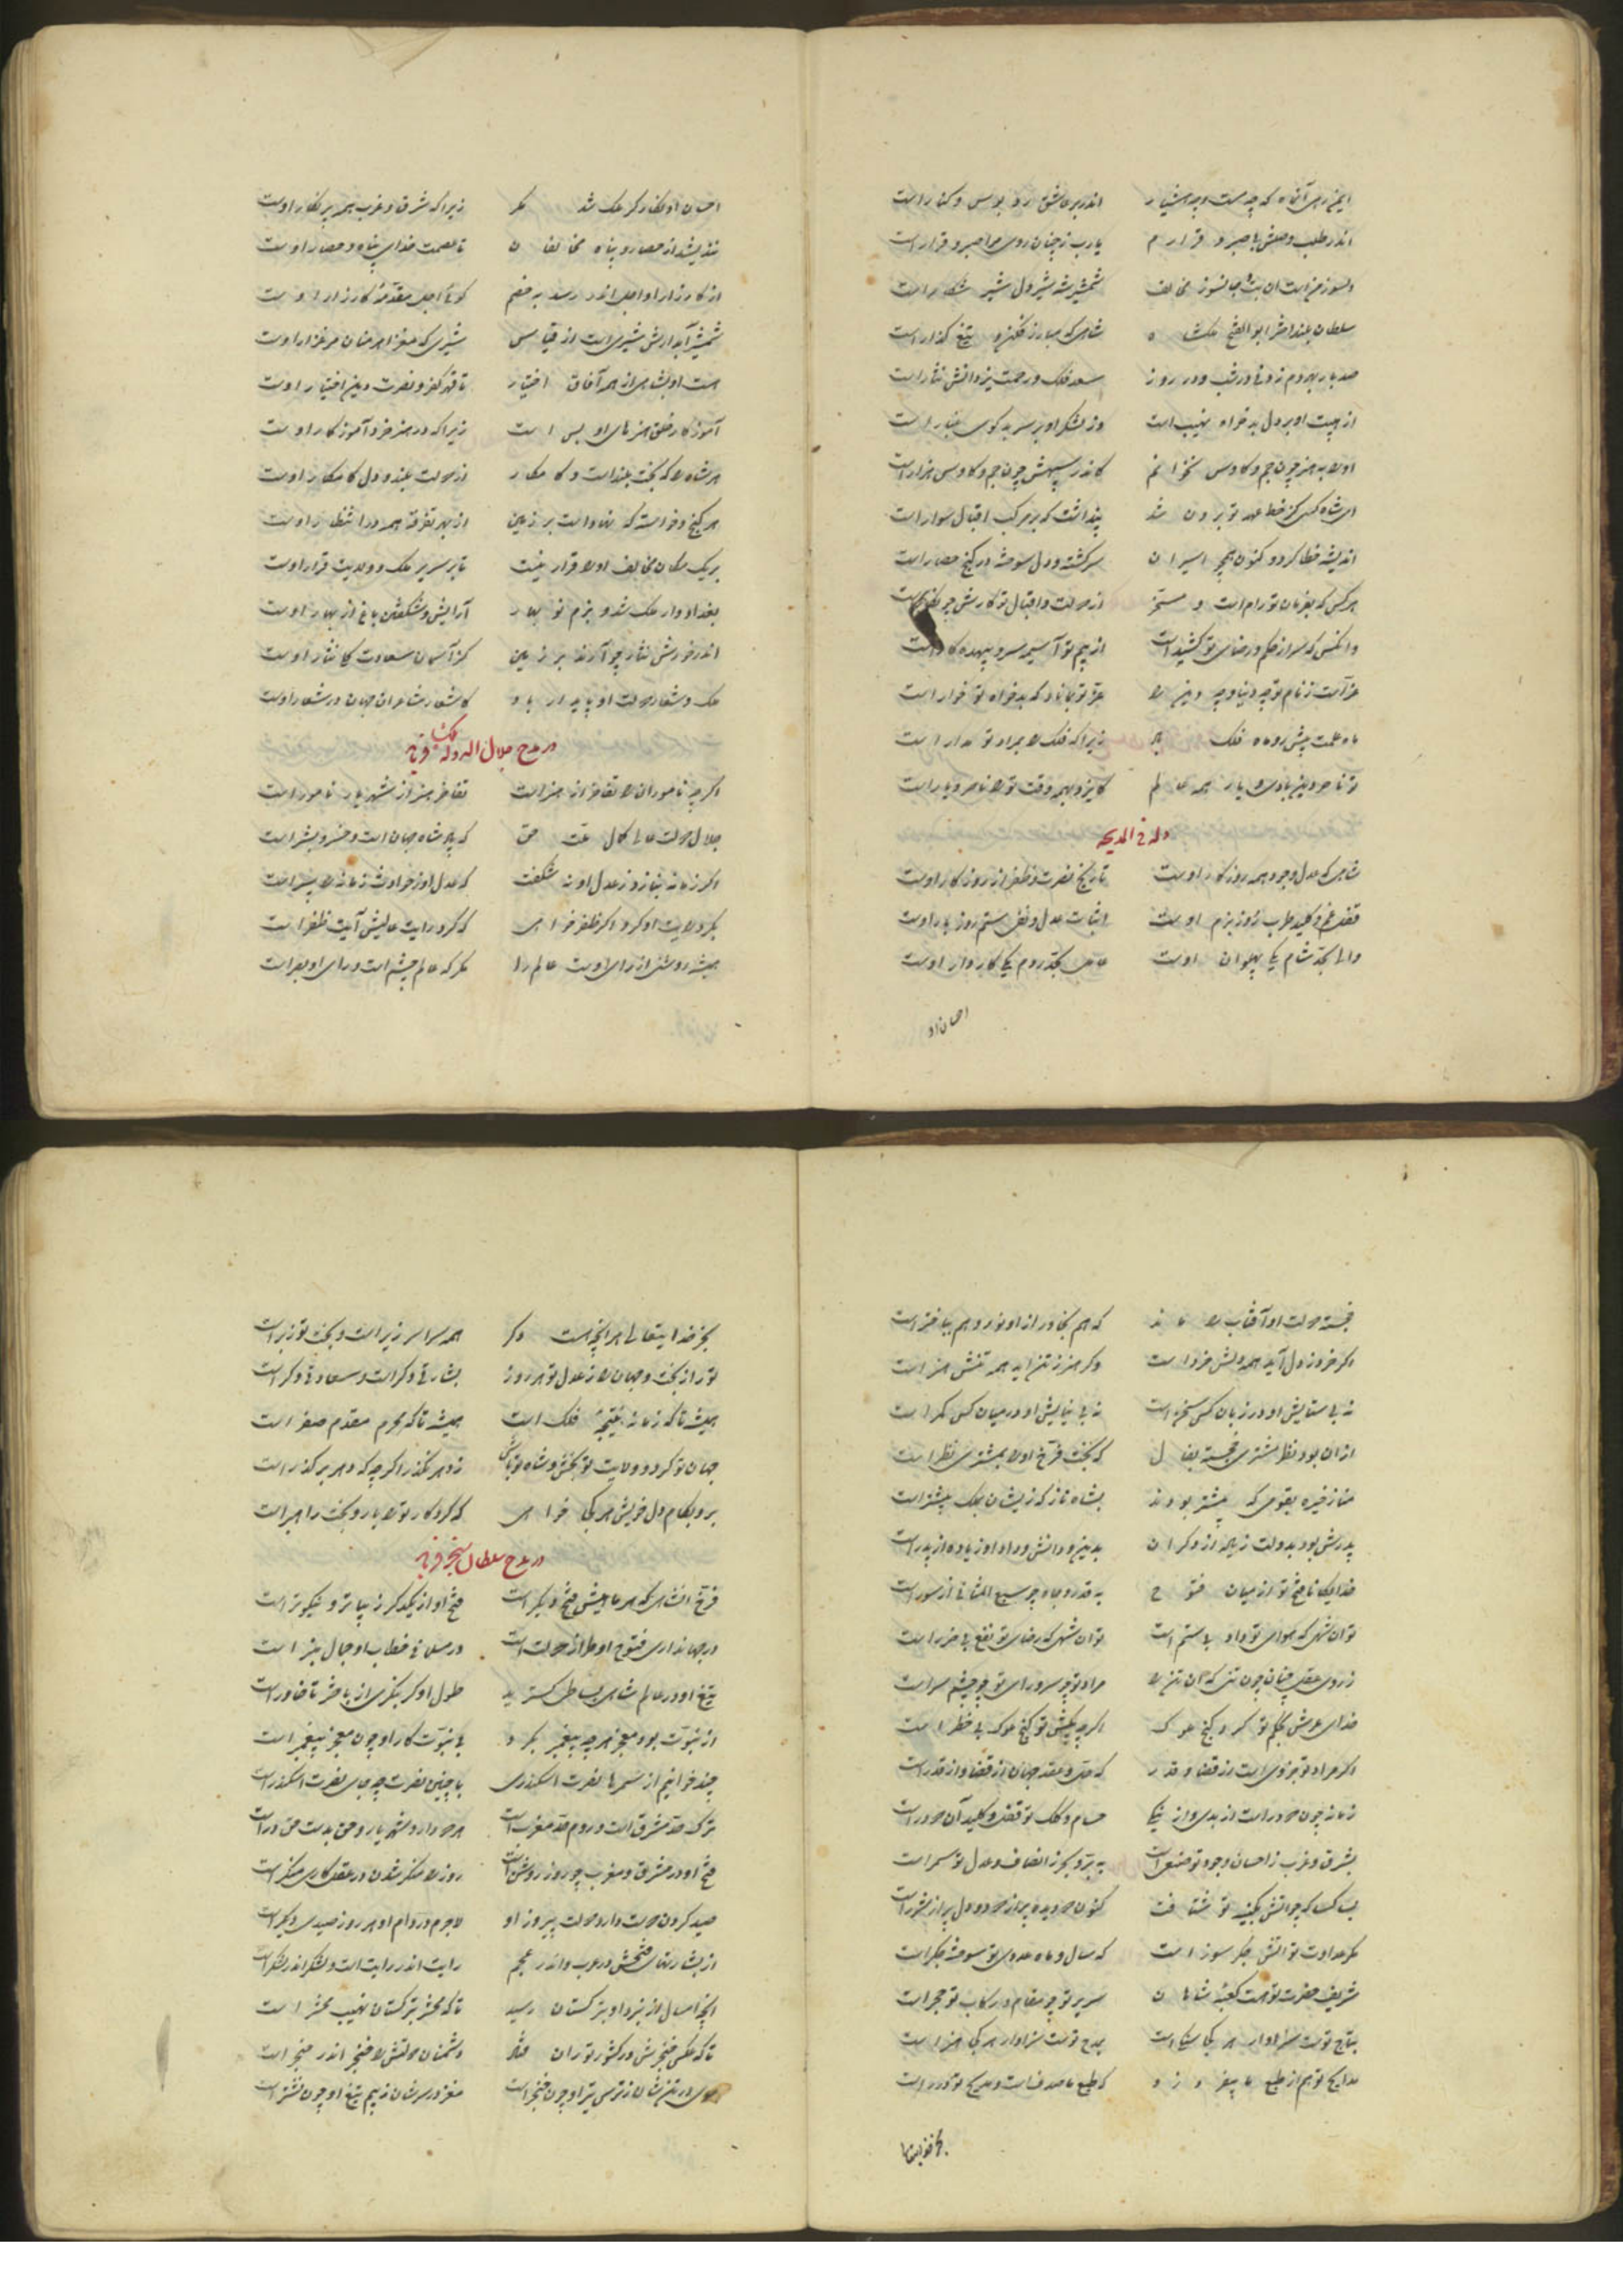 اندر طلب وصلش با صبر و قرارم یارب ز چنان روی مرا صبر و قرار است
سلطان بلند اختر ابوالفتح ملکشاه شاهی که مبارز فکن و تیغ گذار است
از هیبت او بر دل بدخواه نهیب است وز لشکر او بر سر بدگوی غبار است
او را به هنر چون جم و کاوس نخوانم کاندر سپهش چون جم و کاوس هزار است
ای شاه کسی کز خط عهد تو برون شد پنداشت که بر مرکب اقبال سوار است
اندیشه خطا کرد و کنون همچو اسیران سرگشته و دل سوخته در کنج حصار است
هر کس که بفرمان تو رام است و مسخر از دولت و اقبال تو کارش چو
وانکس که سر از حکم و رضای تو کشیدست از بیم تو آسیمه سر و بیهده کار است
وله فی المدیحه
شاهی که عدل و جود همه روزگار اوست تاریخ نصرت و ظفر از روزگار اوست
قفل غم و کلید طرب روز بزم اوست اثبات عدل و نفی ستم روز بار اوست
والی بحد شام یکی پهلوان اوست عامل بحد روم یکی کاردار اوست
احسان او
احسان او بکار گر ملک شد مگر زیرا که شرق و غرب همه بر نگار اوست
نندیشد از حصار و پناه مخالفان تا عصمت خدای پناه و حصار اوست
از کارزار او اجل اندر رسد به خصم گوئی اجل مقدمهٔ کارزار اوست
شمشیر آبدارش شیری است از قیاس شیری که مغز اهرمنان مرغزار اوست
هست او بشاهی از همه آفاق اختیار تا قهر کفر و نصرت دین اختیار اوست
آموزگار خلق هنرهای او بس است زیرا که در هنر خرد آموزگار اوست
هر شاه را که بخت بلند است و کامکار از دولت بلند و دل کامکار اوست
هر گنج و خواسته که نهاد است بر زمین از بهر تفرقه همه در انتظار اوست
بر یک مکان مخالف او را قرار نیست تا بر سریر ملک و ولایت قرار اوست
بغداد دار ملک شد و بزم نو بهار آرایش و شکفتن باغ از بهار اوست
اندر خورش نثار چو آرند بر زمین کز آسمان سعادت کلی نثار اوست
ملک و شعار دولت او پایدار باد کاشعار شاعران جهان در شعار اوست
در مدح جلال الدوله ملکشاه فرماید
اگرچه ناموران را تفاخر از هنر است تفاخر هنر از شهریار نامور است
جلال دولت عالی کمال ملت حق که پادشاه جهان است و خسرو بشر است
اگر زمانه بنازد ز عدل او نه شگفت که عدل او ز حوادث زمانه را سپر است
بگرد رایت او گرد اگر ظفر خواهی که گرد رایت عالیش آیت ظفر است
همیشه روشنی از رای اوست عالم را مگر که عالم چشم است و رای او بصر است
خجسته دولت او آفتاب را ماند که هم بخاور ازو نور و هم بباختر است
اگر خرد ز دل آید همه دلش خرد است وگر هنر ز تن آید همه تنش هنر است
نه بی ستایش او در زبان کس سخن است نه بی نیایش او در میان کس کمر است
از آن بود نظر مشتری خجسته بفال که بخت فرخ او را بمشتری نظر است
مناز خیره بقومی که پیشتر بودند بشاه ناز که زیشان بملک پیشتر است
پدرش بود بدولت زیاده از دگران بدین و دانش و داد او زیاده از پدر است
خدایگانا فتح تو از میان فتوح به قدر و جاه چو سبع المثانی از سور است
تو آن شهی که هوای تو داد بی ستم است تو آن شهی که رضای تو نفع بی ضرر است
اگر مراد تو جزوی است از قضا و قدر که حل و عقد جهان از قضا و از قدر است
زمانه چون دو در است از بدی و از نیکی حسام و کلک تو قفل و کلید آن دو در است
بشرق و غرب ز احسان و جود تو صنع است به بر و بحر ز انصاف و عدل تو سمر است
بسا کسا که چو آتش بکینه تو شتافت کنون دو دیده پر از دود و دل پر از شرر است
مگر عداوت تو آتش جگر سوز است که سال و ماه عدوی تو سوخته جگر است
شریف حضرت تو هست کعبهٔ شاهان سریر تو چو مقام و رکاب تو حجر است
بتاج توست سزاوار هر کجا ملک است بمدح توست سزاوار هر کجا هنر است
مدایح تو هم از طبع ما بیفروزد که طبع ما صدف است و مدیح تو درر است
بجز خدایتعالی
بجز خدایتعالی هر آنچه هست دگر همه سراسر زیر است و بخت تو زبر است
تو را ز بخت و جهان را ز عدل تو هر روز بشارتی دگر است و سعادتی دگر است
همیشه تا که زمانه نتیجهٔ فلک است همیشه تا که محرم مقدم صفر است
جهان تو گرد و ولایت تو بخش و شاه تو باش ز دهر نگذر اگرچه که دهر بر گذر است
برو بکام دل خویش هر کجا خواهی که کردگار تو را یار و بخت راهبر است
در مدح سلطان سنجر فرماید
فرخ آن شاهی که هر ماهیش فتحی دیگر است فتح او از یکدگر زیباتر و نیکوتر است
در جهانداری فتوح او طراز دولت است در مسلمانی خطاب او جمال منبر است
تیغ او در عالم شاهی بساطی گسترید طول او گر بنگری از باختر تا خاور است
از نبوت بود معجز هرچه پیغمبر بکرد بی نبوت کار او چون معجز پیغمبر است
چند خوانیم از سمرها نصرت اسکندری با چنین نصرت چه جای نصرت اسکندر است
ترک حد مشرق است و روم حد مغرب است هر دو دارد شهریار و حق بدست حق در است
فتح او در مشرق و مغرب چو روز روشن است روز را منکر شدن در عقل کاری منکر است
صید کردن دوست دارد دولت پیروز او لاجرم در دام او هر روز صیدی دیگر است
از بشارتهای فتحش در عرب و اندر عجم رایت اندر رایت است و لشکر اندر لشکر است
آنچه امسال از نبرد او بترکستان رسید تا که محشر بترکستان نهیب محشر است
تا که عکس خنجرش در کشور توران فتاد دشمنان دولتش را خنجر اندر حنجر است
موی بر تنشان ز ترس تیر او چون خنجر است مغز در سرشان ز بیم تیغ او چون نشتر است